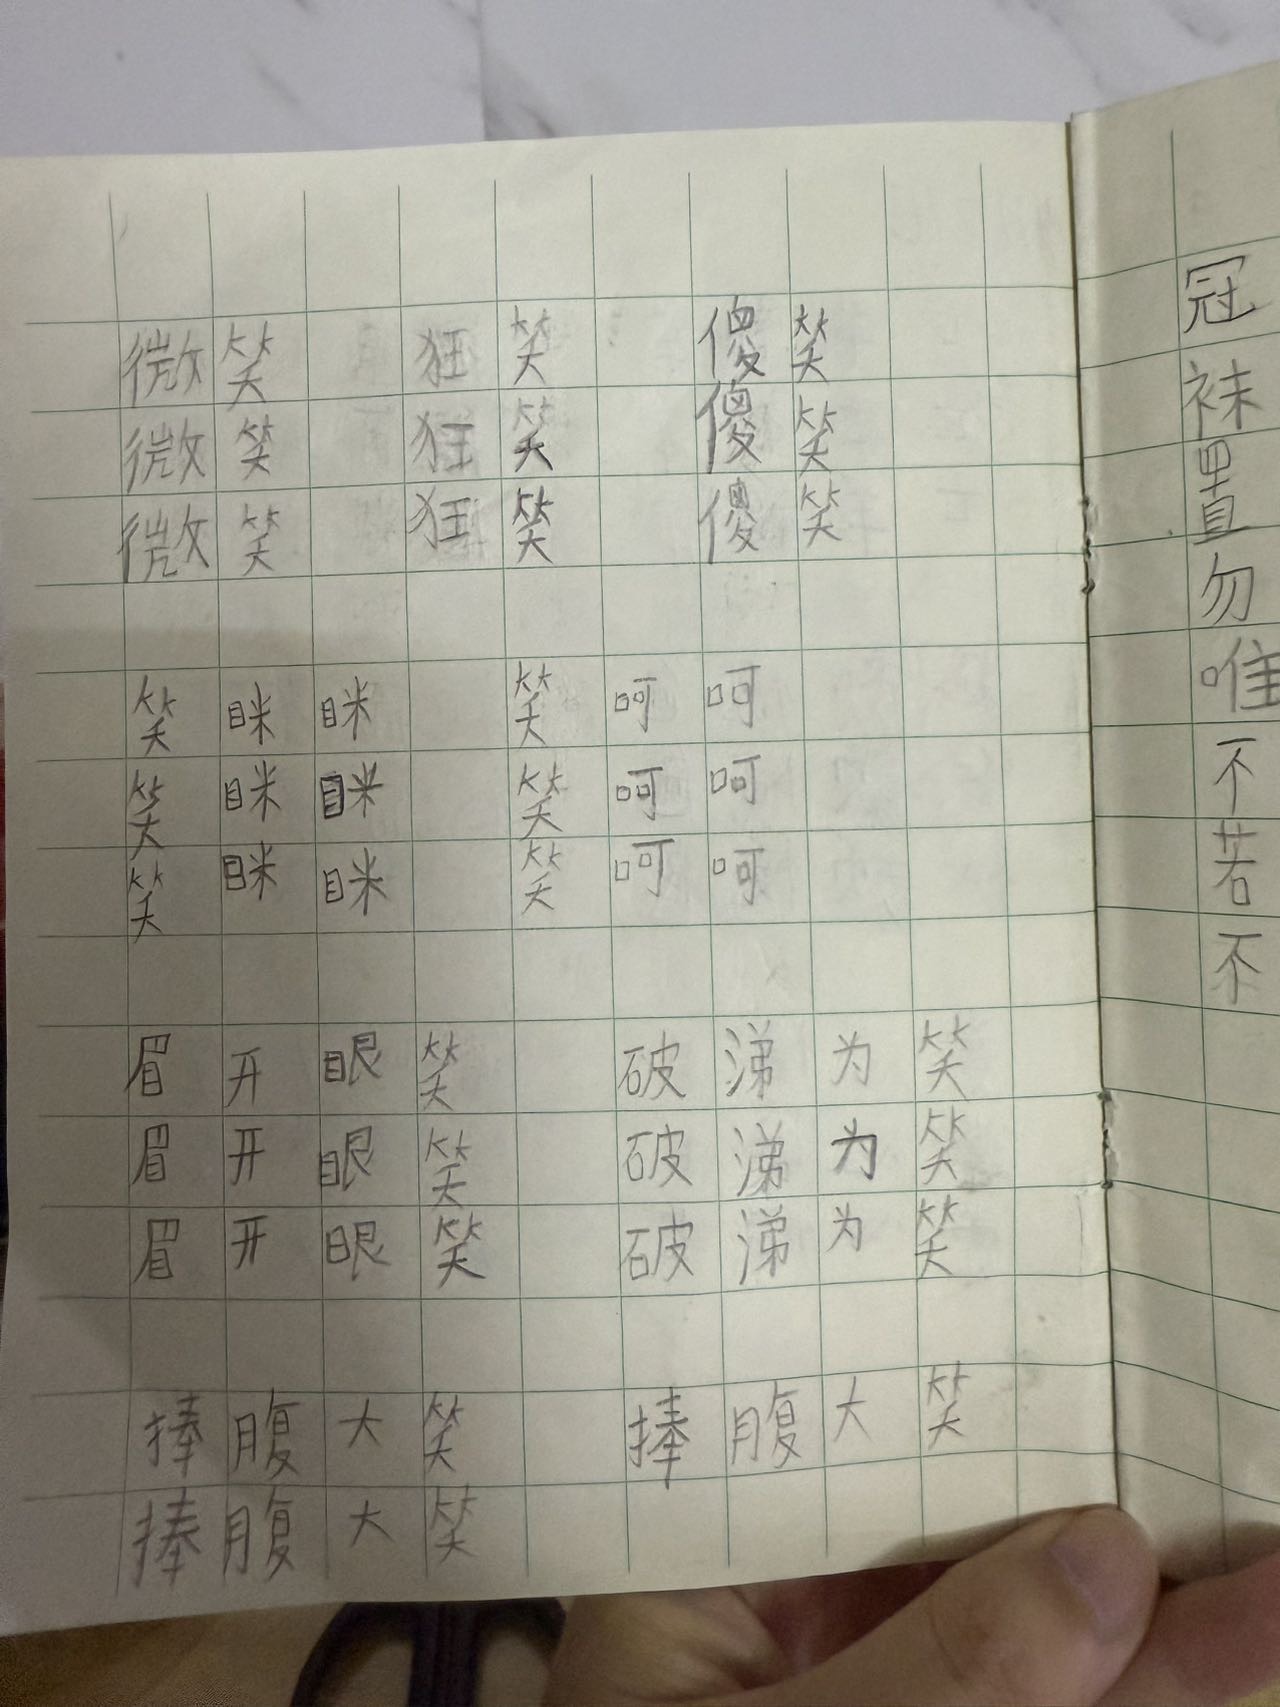 微笑 狂笑 傻笑
微笑 狂笑 傻笑
微笑 狂笑 傻笑
笑眯眯 笑呵呵
笑眯眯 笑呵呵
笑眯眯 笑呵呵
眉开眼笑 破涕为笑
眉开眼笑 破涕为笑
眉开眼笑 破涕为笑
捧腹大笑 捧腹大笑
捧腹大笑
冠
袜
置
勿
唯
不
若
不